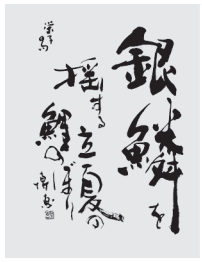 銀鱗を
揺する
立夏の
鯉のぼり